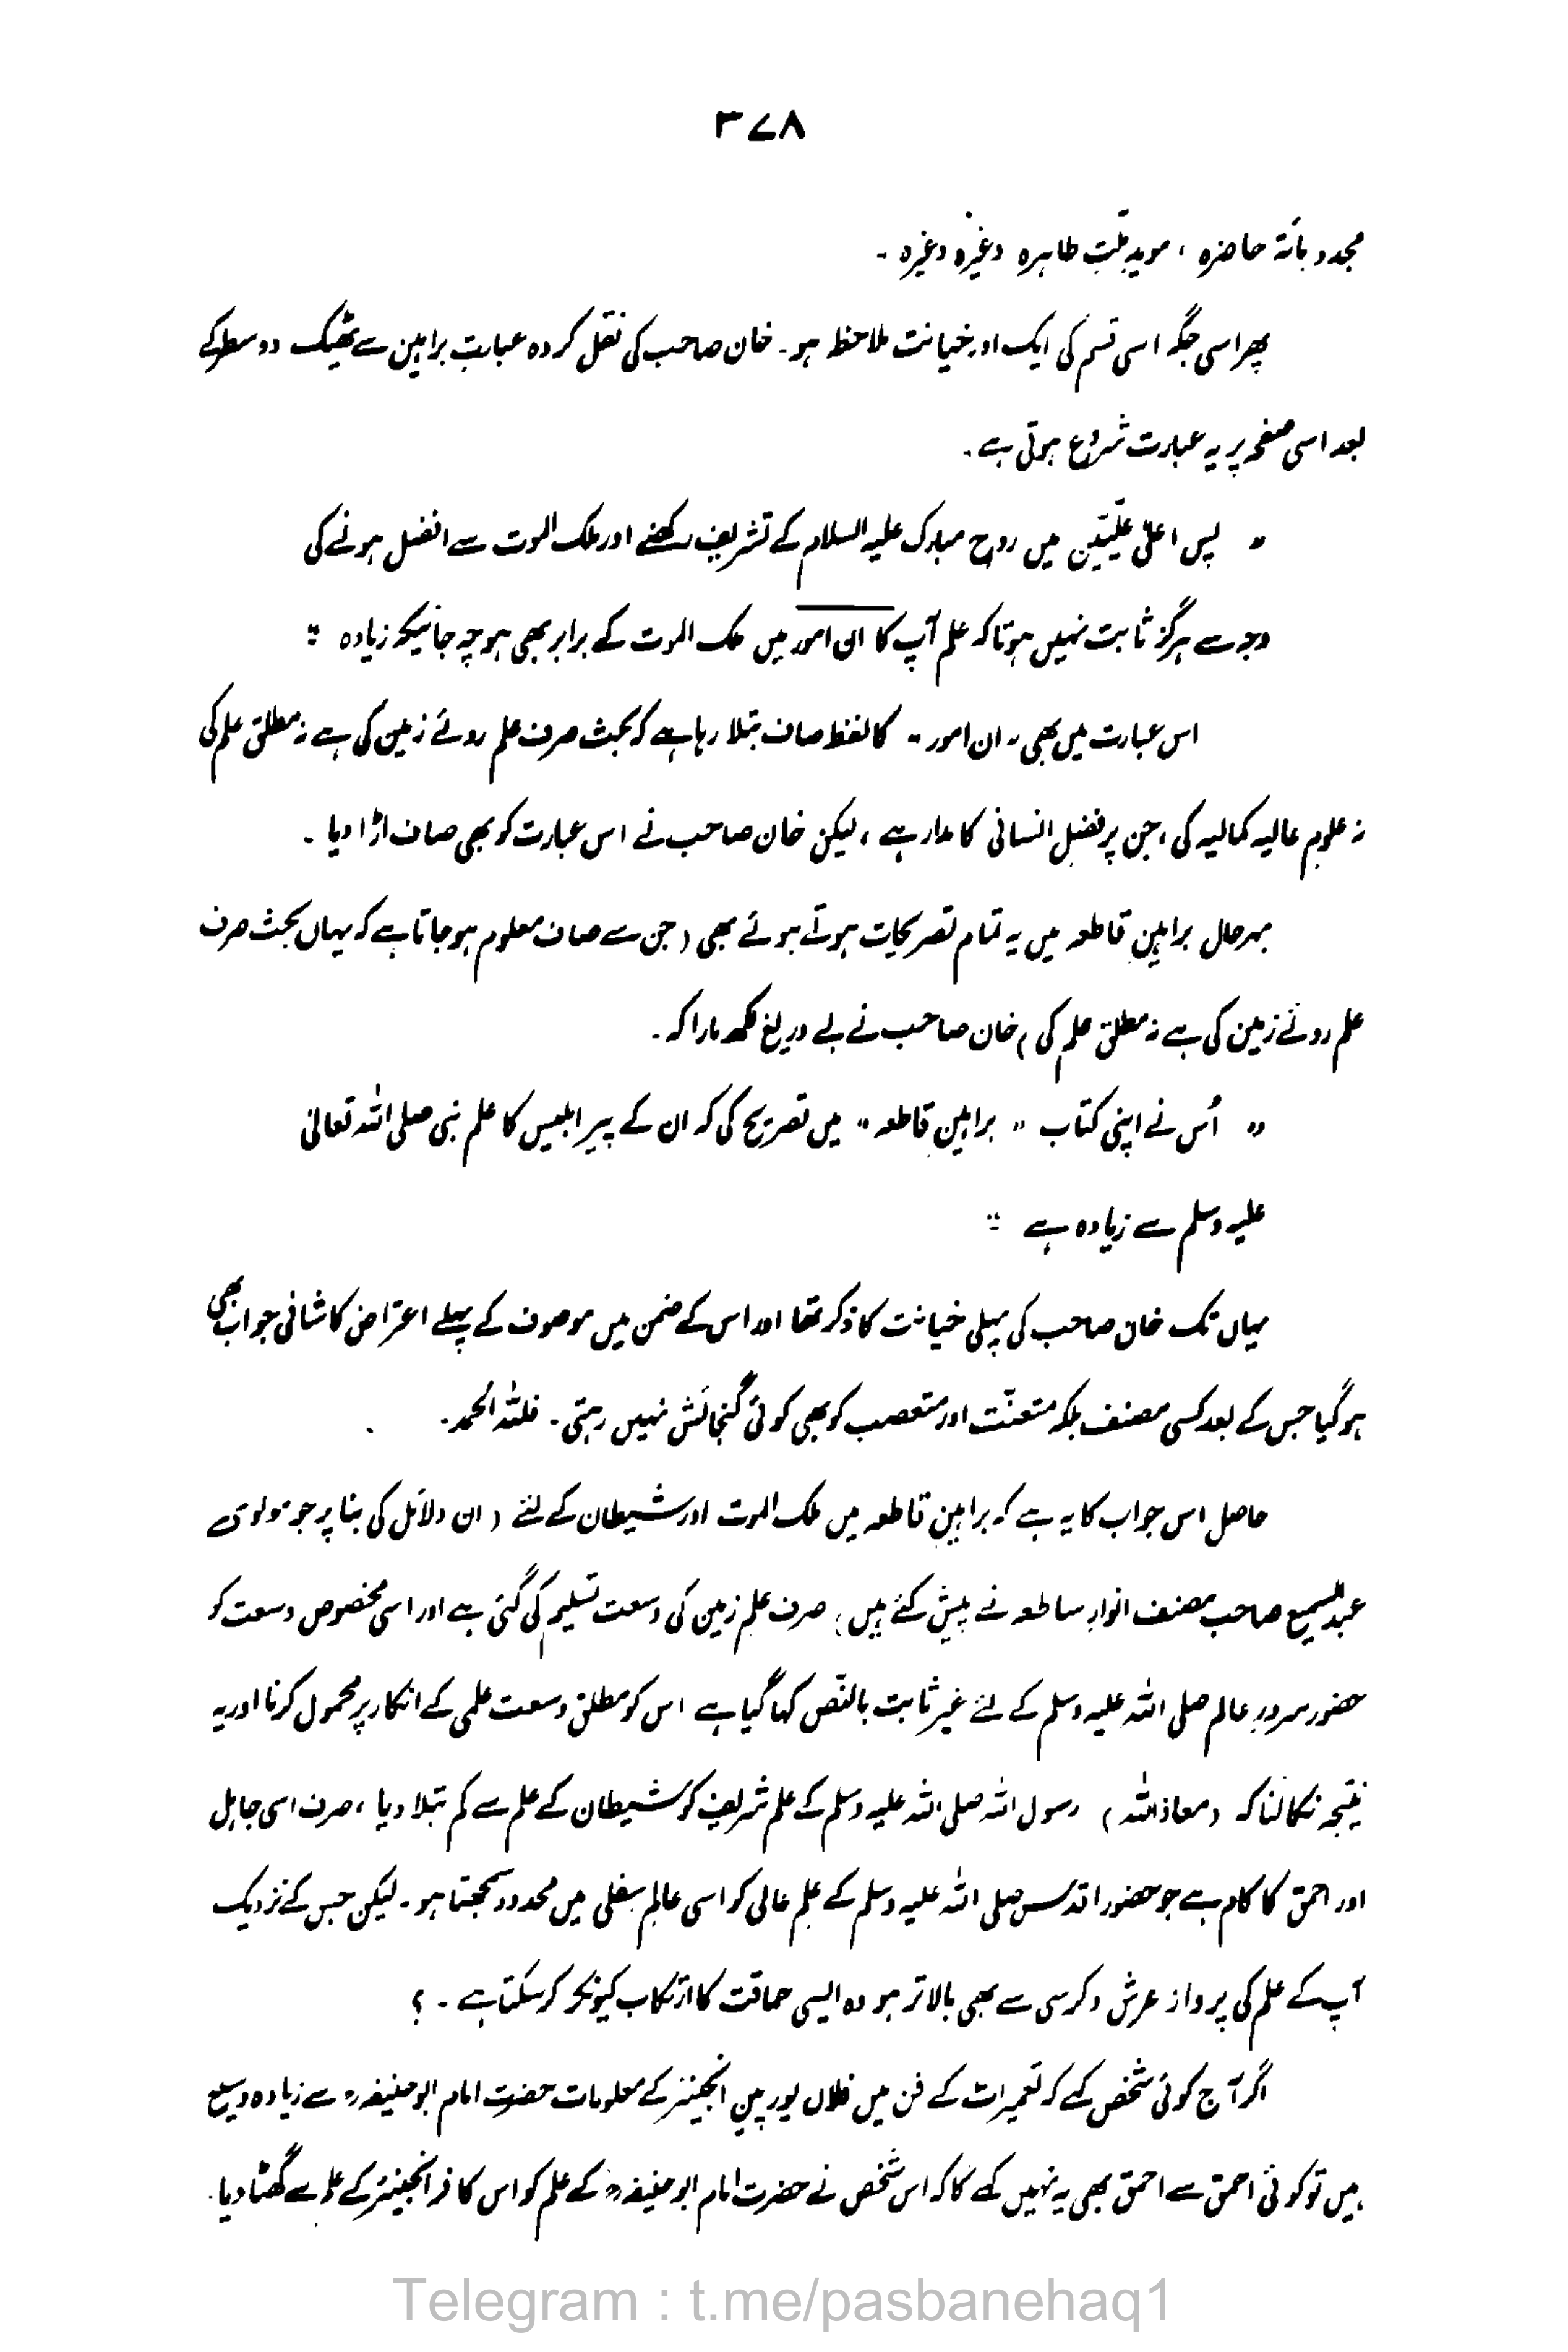 ۳۷۸
مجدد مأتہ حاضرہ ، موید ملتِ طاہرہ وغیرہ وغیرہ ۔
پھر اسی جگہ اسی قسم کی ایک اور خیانت ملاحظہ ہو ۔ خان صاحب کی نقل کردہ عبارتِ براہین سے ٹھیک دو سطر کے
بعد اسی صفحہ پر یہ عبارت شروع ہوتی ہے ۔
" پس اعلیٰ علیّین میں روح مبارک علیہ السلام کے تشریف رکھنے اور ملک الموت سے افضل ہونے کی
وجہ سے ہرگز ثابت نہیں ہوتا کہ علم آپ کا ان امور میں ملک الموت کے برابر بھی ہو چہ جائیکہ زیادہ "
اس عبارت میں بھی " ان امور " کا لفظ صاف بتلا رہا ہے کہ بحث صرف علم روئے زمین کی ہے نہ مطلق علم کی
نہ علومِ عالیہ کمالیہ کی ، جن پر فضلِ انسانی کا مدار ہے ، لیکن خان صاحب نے اس عبارت کو بھی صاف اڑا دیا ۔
بہرحال براہینِ قاطعہ میں یہ تمام تصریحات ہوتے ہوئے بھی ( جن سے صاف معلوم ہو جاتا ہے کہ یہاں بحث صرف
علم روئے زمین کی ہے نہ مطلق علم کی ) خان صاحب نے بے دریغ لکھ مارا کہ ۔
" اُس نے اپنی کتاب " براہینِ قاطعہ " میں تصریح کی کہ ان کے پیر ابلیس کا علم نبی صلی اللہ تعالیٰ
علیہ وسلم سے زیادہ ہے "
یہاں تک خان صاحب کی پہلی خیانت کا ذکر تھا اور اس کے ضمن میں موصوف کے پہلے اعتراض کا شافی جواب بھی
ہو گیا جس کے بعد کسی مصنف بلکہ متعنّت اور متعصب کو بھی کوئی گنجائش نہیں رہتی ۔ فللّٰہ الحمد ۔
حاصل اس جواب کا یہ ہے کہ براہینِ قاطعہ میں ملک الموت اور شیطان کے لئے ( ان دلائل کی بنا پر جو مولوی
عبدالسمیع صاحب مصنف انوارِ ساطعہ نے پیش کئے ہیں ) صرف علمِ زمین کی وسعت تسلیم کی گئی ہے اور اسی مخصوص وسعت کو
حضور سرورِ عالم صلی اللہ علیہ وسلم کے لئے غیر ثابت بالنّص کہا گیا ہے اس کو مطلق وسعت علمی کے انکار پر محمول کرنا اور یہ
نتیجہ نکالنا کہ ( معاذ اللہ ) رسول اللہ صلی اللہ علیہ وسلم کے علم شریف کو شیطان کے علم سے کم بتلا دیا ، صرف اسی جاہل
اور احمق کا کام ہے جو حضور اقدس صلی اللہ علیہ وسلم کے علمِ عالی کو اسی عالمِ سفلی میں محدود سمجھتا ہو ۔ لیکن جس کے نزدیک
آپ کے علم کی پرواز عرش و کرسی سے بھی بالاتر ہو وہ ایسی حماقت کا ارتکاب کیونکر کر سکتا ہے ۔ ؟
اگر آج کوئی شخص کہے کہ تعمیرات کے فن میں فلاں یورپین انجینئر کے معلومات حضرت امام ابوحنیفہؒ سے زیادہ وسیع
ہیں تو کوئی احمق سے احمق بھی یہ نہیں کہے گا کہ اس شخص نے حضرت امام ابوحنیفہؒ کے علم کو اس کافر انجینئر کے علم سے گھٹا دیا ۔
Telegram : t.me/pasbanehaq1